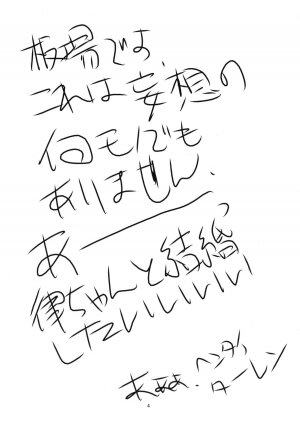 板場です、
これは妄想の
何モノでも
ありません、
あーーーっ
律ちゃんと結婚
したいいいいい
あぁぁ、ヘンタイ
ターレン